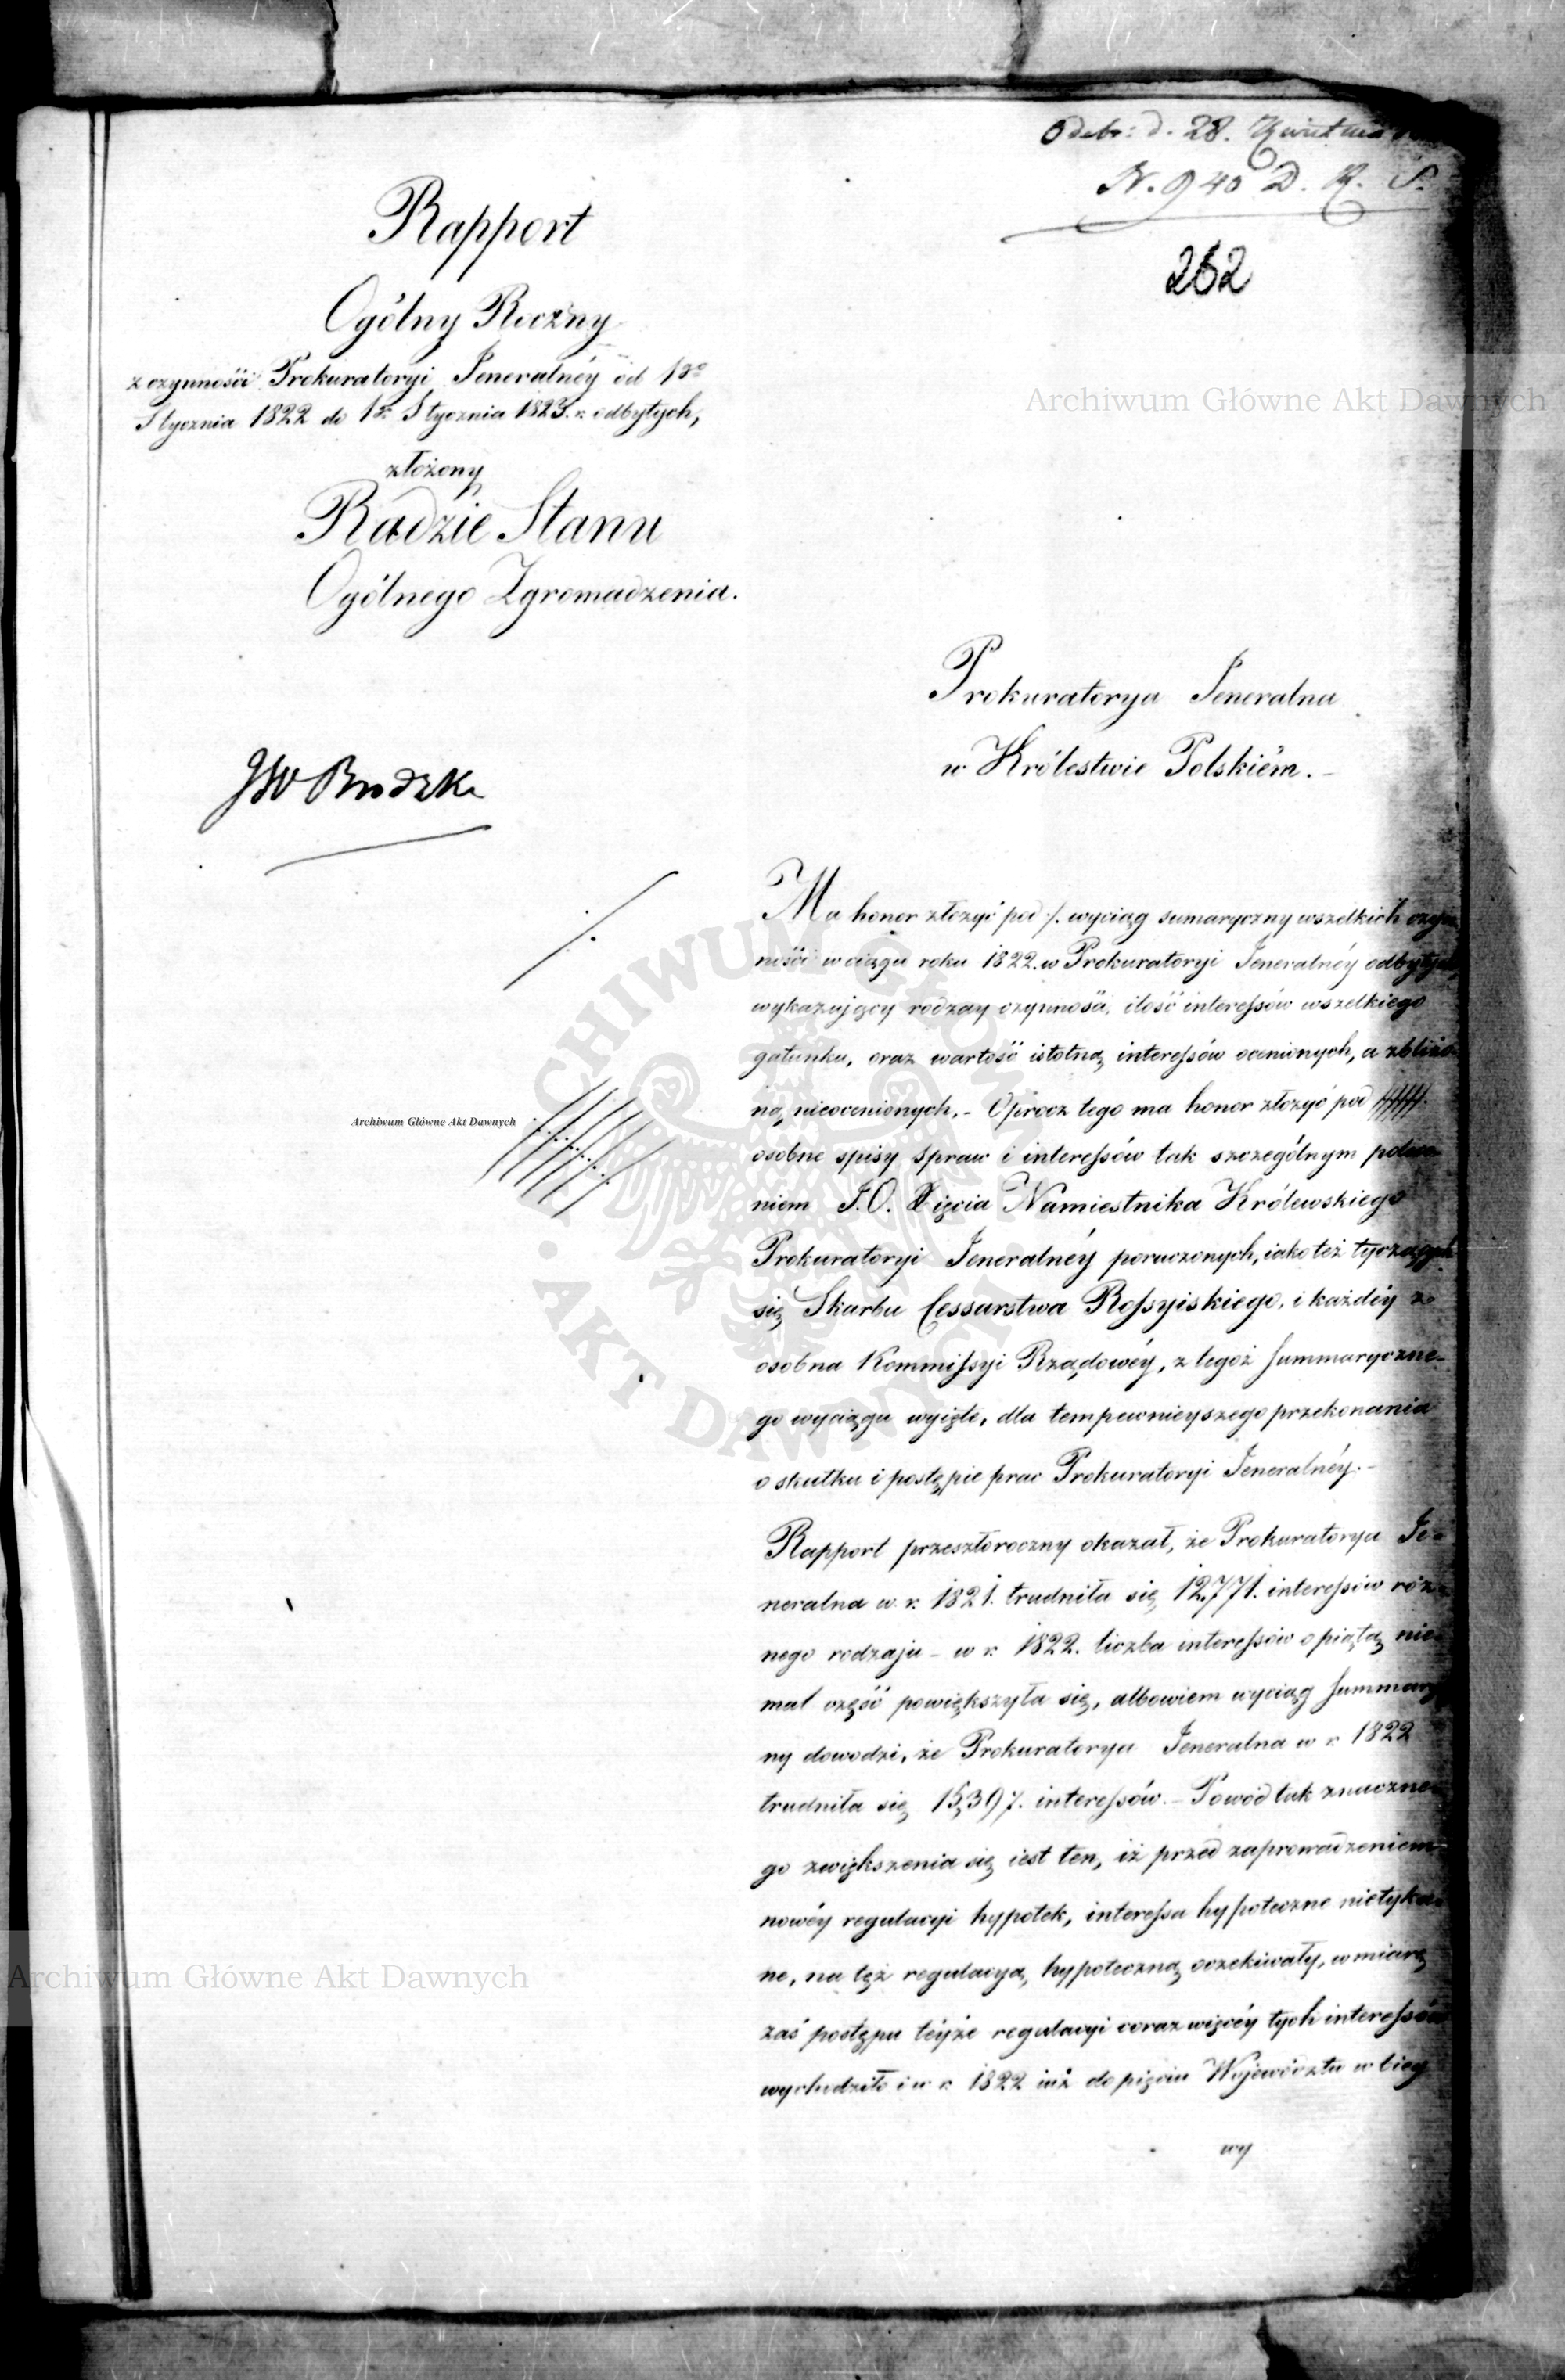 Odebr: d. 28. Kwietnia
N. 940 D. R. S.
262
Rapport
Ogólny Roczny
z czynności Prokuratoryi Jeneralnéy od 1go
Stycznia 1822 do 1go Stycznia 1823. r. odbytych,
złożony
Radzie Stanu
Ogólnego Zgromadzenia.
Prokuratorya Jeneralna
w Królestwie Polskiém. –
JW
Ma honor złożyć pod ⁒ wyciąg sumaryczny wszelkich czyn
ności w ciągu roku 1822. w Prokuratoryi Jeneralnéy odbytych
wykazujący rodzay czynności, ilość interessów wszelkiego
gatunku, oraz wartość istotną interessów ocenionych, a zbliżo-
ną nieocenionych. – Oprócz tego ma honor złożyć pod
osobne spisy spraw i interessów tak szczególnym polece-
niem J.O. Xięcia Namiestnika Królewskiego
Prokuratoryi Jeneralnéy poruczonych, iako też tyczących
się Skarbu Cessarstwa Rossyiskiego, i każdéy z
osobna Kommissyi Rządowéy, z tegoż summaryczne-
go wyciągu wyięte, dla tem pewnieyszego przekonania
o skutku i postępie prac Prokuratoryi Jeneralnéy. –
Rapport przeszłoroczny okazał, że Prokuratorya Je-
neralna w r. 1821. trudniła się 12,771. interessów róż-
nego rodzaju – w r. 1822. liczba interessów o piątą nie-
mal część powiększyła się, albowiem wyciąg summary
ny dowodzi, że Prokuratorya Jeneralna w r. 1822
trudniła się 15,397. interessów. – Powód tak znaczne-
go zwiększenia się iest ten, iż przed zaprowadzeniem
nowéy regulacyi hypotek, interessa hypoteczne nietyka-
ne, na tęż regulacyą hypoteczną oczekiwały, w miarę
zaś postępu téyże regulacyi coraz więcéy tych interessów
wychodziło i w r. 1822 iuż do pięciu Województw w bieg
wy
Archiwum Główne Akt Dawnych
Archiwum Główne Akt Dawnych
Archiwum Główne Akt Dawnych
ARCHIWUM GŁÓWNE · AKT DAWNYCH ·